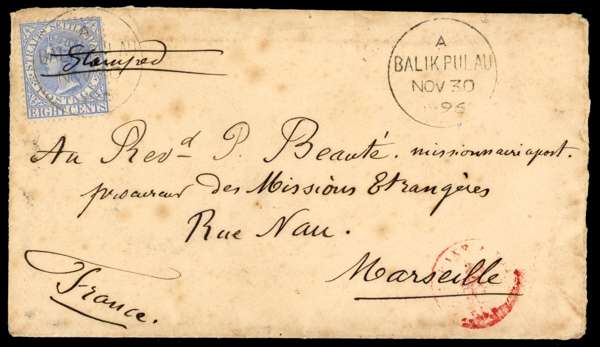 STRAITS SETTLEMENTS
POSTAGE
EIGHT CENTS
Stamped
A
BALIK PULAU
NOV 30
96
Au Rev.d P. Beauté. missionnaire apost.
procureur des Missions Etrangères
Rue Nau.
Marseille
France.